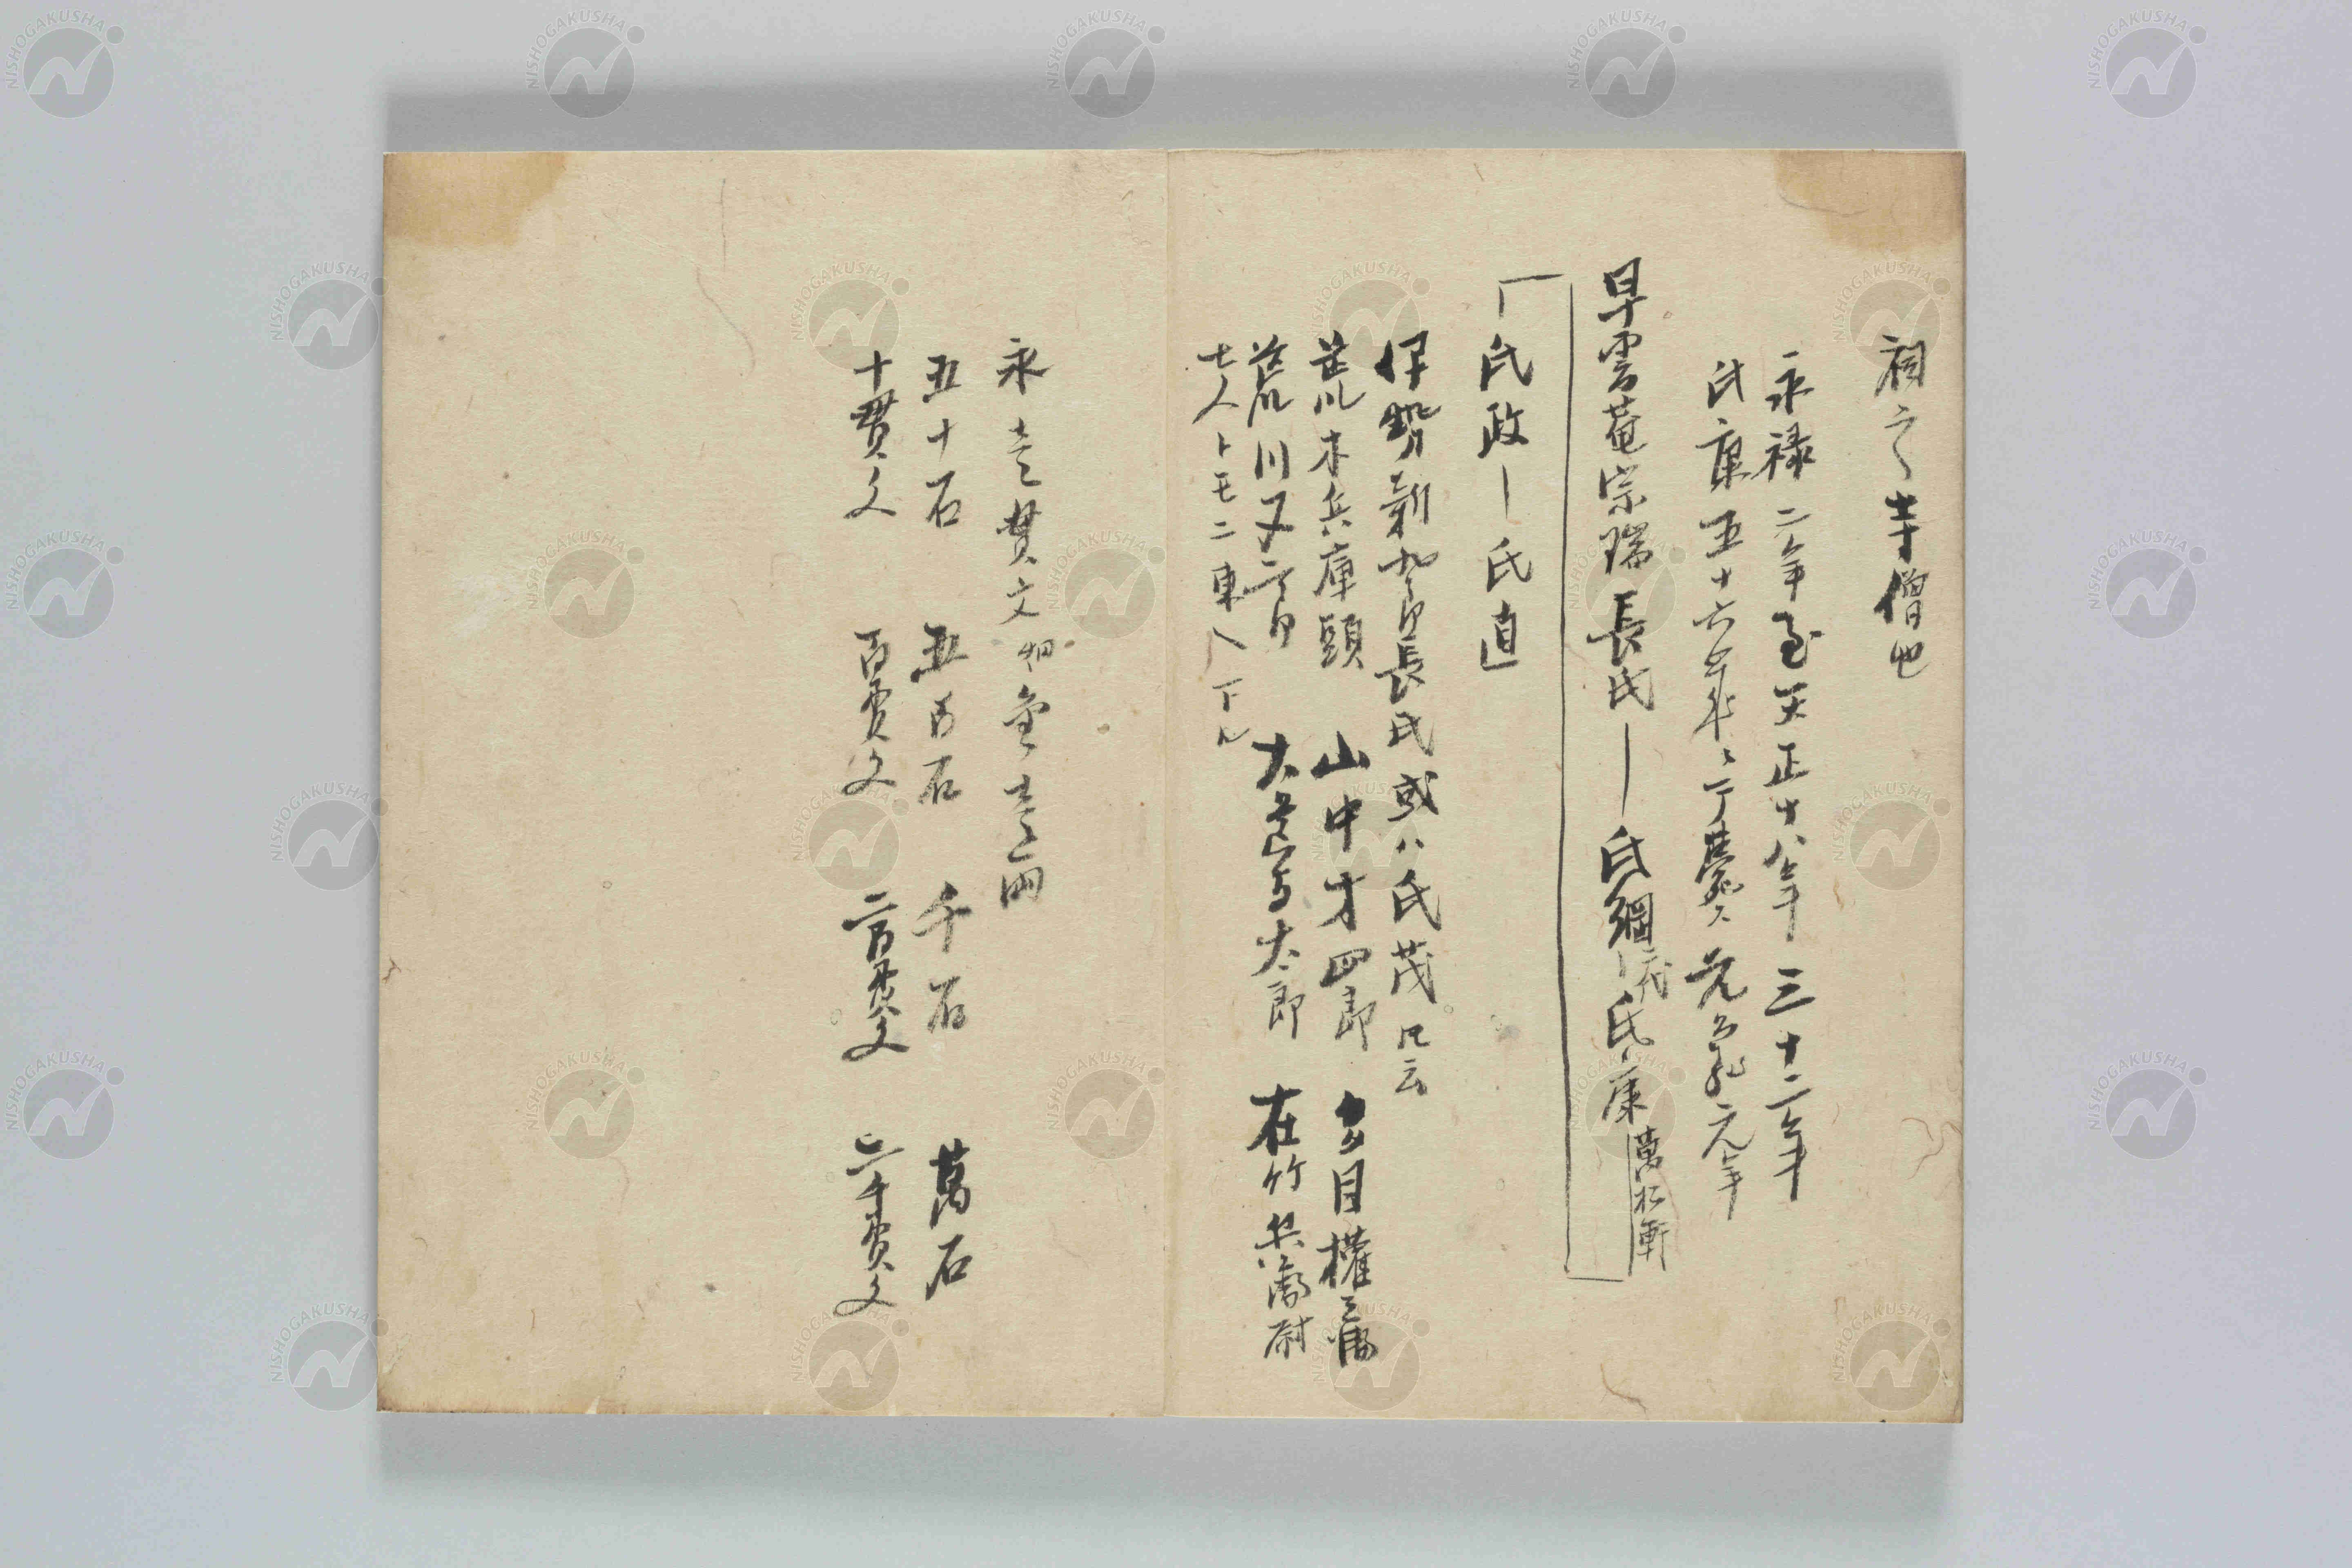 祠之寺僧也
永禄二年至天正十八年三十二年
氏康五十六
早雲菴宗瑞長氏―氏綱―氏康萬松軒
氏政―氏直
伊勢新九郎長氏或ハ氏茂氏云
荒木兵庫頭 山中才四郎 多目權
荒川又二郎 大道寺太郎 在竹兵衛尉
七人トモニ東ヘ下ル
永壱貫文 金壱両
五十石 五百石 千石 萬石
十貫文 百貫文 二百貫文 二千貫文
NISHOGAKUSHA